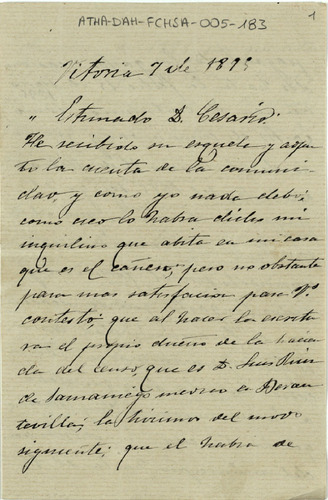 ATHA-DAH-FCHSA-005-183
1
Vitoria 7 de 1899
" Estimado D. Cesario:
He recibido su esquela y adjun
to la cuenta de la comuni
dad, y como yo nada debo,
como eso lo habra dicho mi
inquilino que abita en mi casa
que es el cañero; pero no obstante
para mas satisfacion para V.
contesto; que al hacer la escritu
ra el propio dueño de la hacien
da del censo, que es D. Luis Ruiz
de Samaniego medico en Beran
tevilla; la hicimos del modo
siguiente; que el habra de